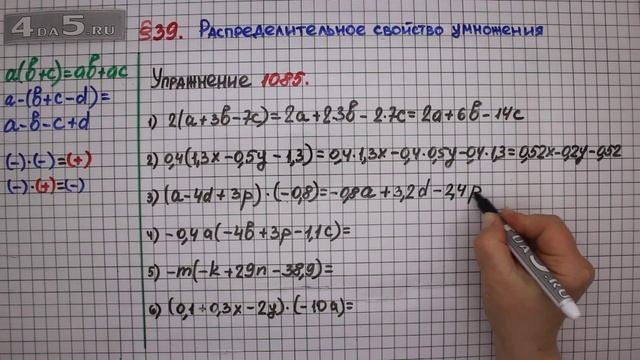 4 ДА 5.RU
§39. Распределительное свойство умножения
a(b+c)=ab+ac
a-(b+c-d)=
a-b-c+d
(-)·(-)=(+)
(-)·(+)=(-)
Упражнение 1085.
1) 2(a+3b-7c)=2a+2·3b-2·7c=2a+6b-14c
2) 0,4(1,3x-0,5y-1,3)=0,4·1,3x-0,4·0,5y-0,4·1,3=0,52x-0,2y-0,52
3) (a-4d+3p)·(-0,8)=-0,8a+3,2d-2,4p
4) -0,4a(-4b+3p-1,1c)=
5) -m(-k+29n-38,9)=
6) (0,1+0,3x-2y)·(-10a)=